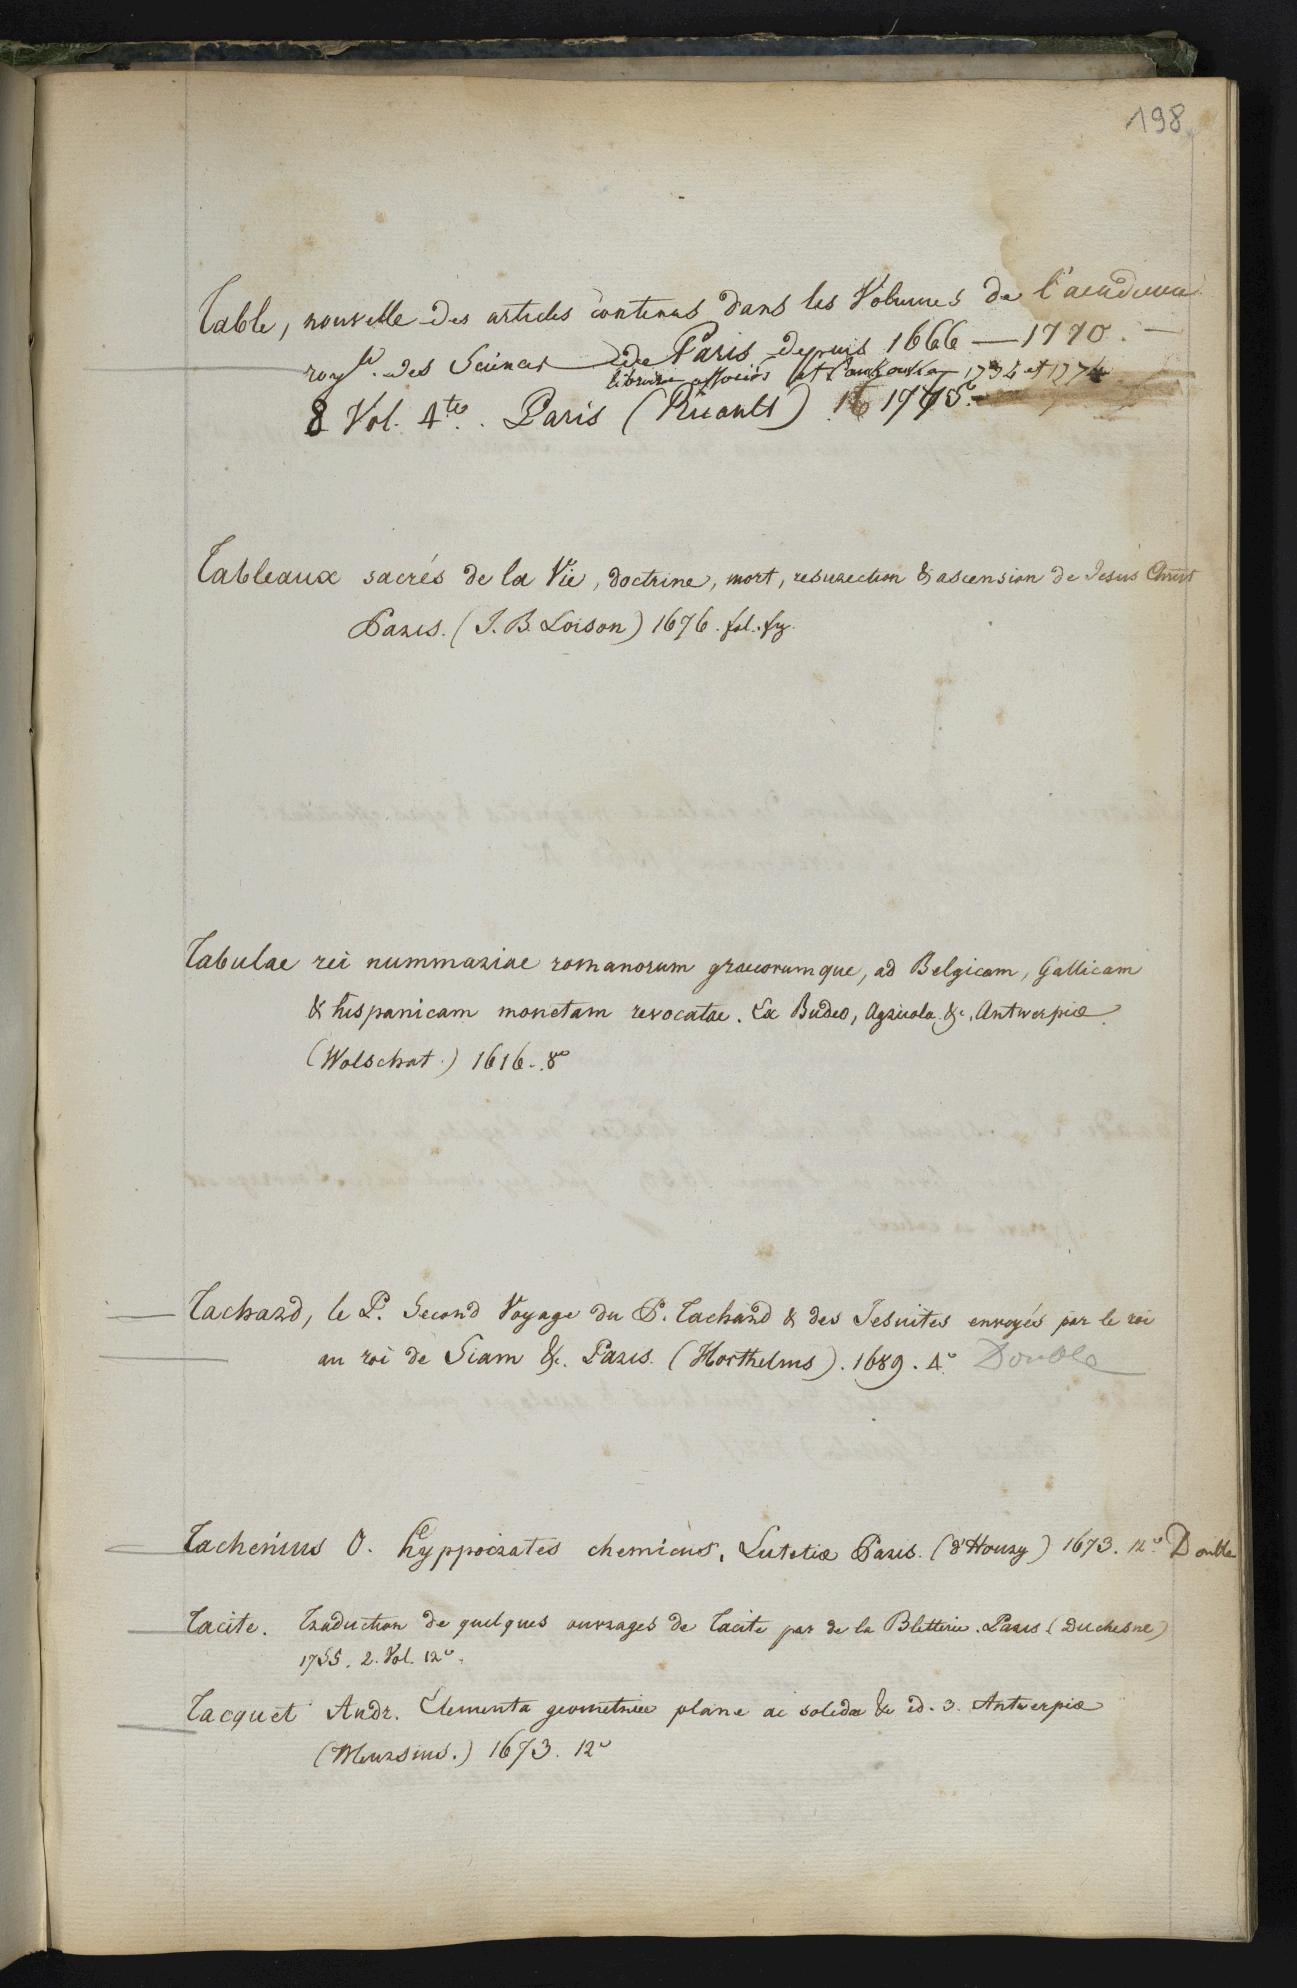 198
Table, nouvelle des articles contenus dans les Volumes de l'academie
royle. des Sciences de Paris depuis 1666 — 1770. —
libraires associés et Panckouke
8 Vol. 4to. Paris (Ruault) 1775.
Tableaux sacrés de la Vie, doctrine, mort, resurection & ascension de Jesus Christ
Paris. (J. B. Loison) 1676. fol. fig.
Tabulae rei nummariae romanorum graecorumque, ad Belgicam, Gallicam
& hispanicam monetam revocatae. Ex Budeo, Agricola &c, Antwerpiæ
(Wolschat.) 1616. 8o
Tachard, le P. Second Voyage du P. Tachard & des Jesuites envoyés par le roi
au roi de Siam &c. Paris. (Horthelms). 1689. 4o Double
Tachenius O. hyppocrates chemicus, Lutetiæ Paris. (d'Houry) 1673. 12o. Double
Tacite. Traduction de quelques ouvrages de Tacite par de la Bletterie. Paris (Duchesne)
1755. 2. Vol. 12o.
Tacquet Andr. Elementa geometriæ planæ ac solidæ &c ed. 3. Antwerpiæ
(Meursius.) 1673. 12o